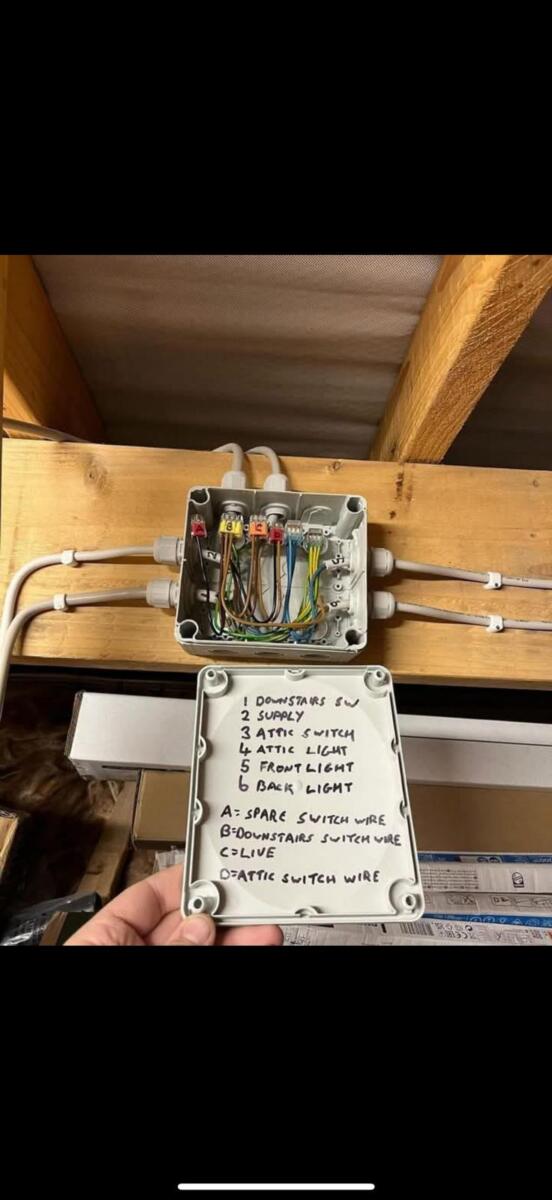 A
B
C
D
2
5
6
1 DOWNSTAIRS SW
2 SUPPLY
3 ATTIC SWITCH
4 ATTIC LIGHT
5 FRONT LIGHT
6 BACK LIGHT
A= SPARE SWITCH WIRE
B=DOWNSTAIRS SWITCH WIRE
C=LIVE
D=ATTIC SWITCH WIRE